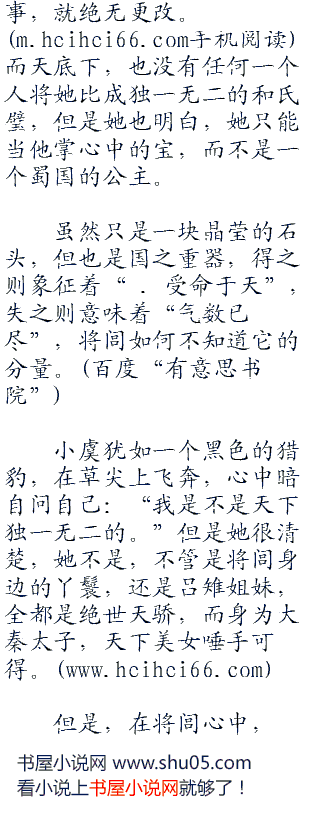 事，就绝无更改。
(m.hcihci66.com手机阅读)
而天底下，也没有任何一个
人将她比成独一无二的和氏
璧，但是她也明白，她只能
当他掌心中的宝，而不是一
个蜀国的公主。
虽然只是一块晶莹的石
头，但也是国之重器，得之
则象征着“．受命于天”，
失之则意味着“气数已
尽”，将闾如何不知道它的
分量。(百度“有意思书
院”)
小虞犹如一个黑色的猎
豹，在草尖上飞奔，心中暗
自问自己：“我是不是天下
独一无二的。”但是她很清
楚，她不是，不管是将闾身
边的丫鬟，还是吕雉姐妹，
全都是绝世天骄，而身为大
秦太子，天下美女唾手可
得。(www.hcihci66.com)
但是，在将闾心中，
书屋小说网 www.shu05.com
看小说上书屋小说网就够了！